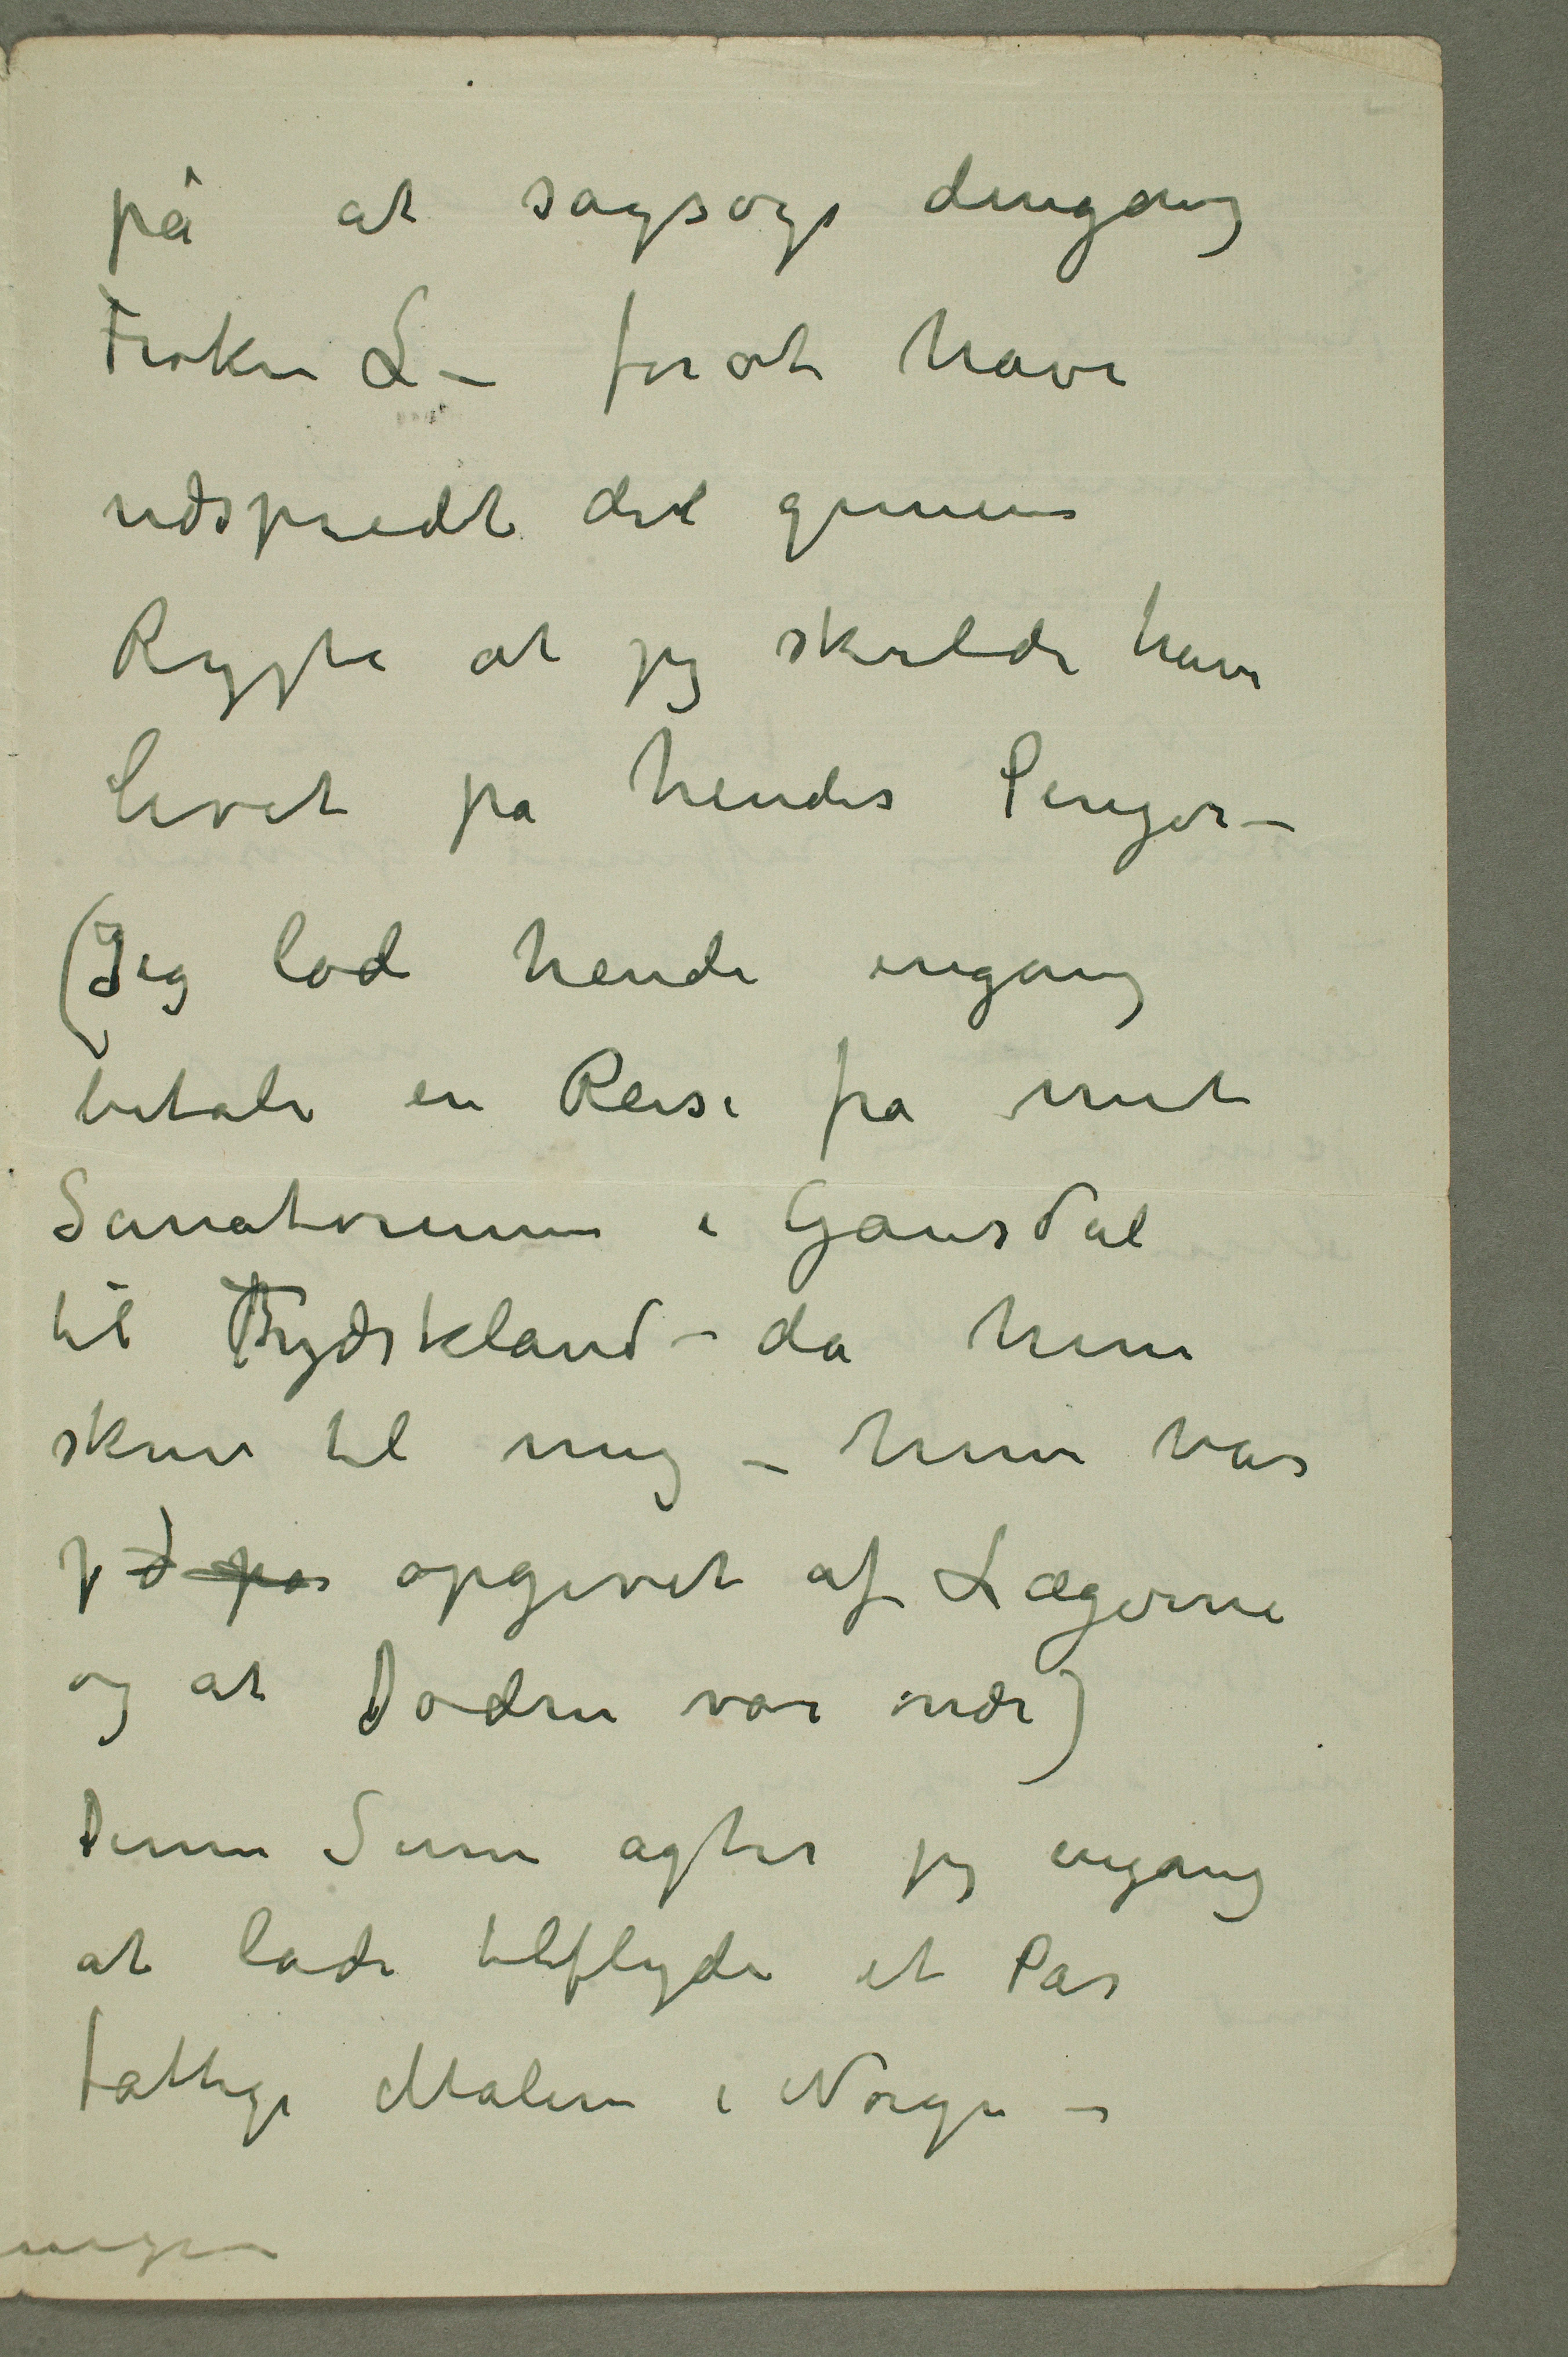 på at sagsøge dengang
Frøken L – forat have
udspredt det gemene
Rygte at jeg skulde have
levet på hendes Penger –
(Jeg lod hende engang
betale en Reise fra mit
Sanatorium i Gausdal
til Tydskland – da hun
skrev til mig – hun var
opgivet af Lægerne
og at Døden var nær)
Denne Sum agter jeg engang
at lade tilflyde et Par
fattige Malere i Norge –